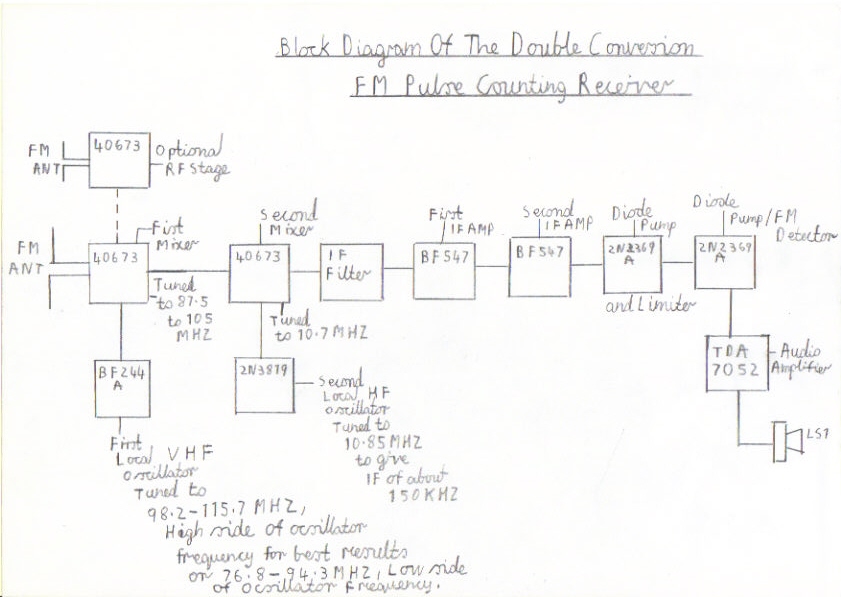 Block Diagram Of The Double Conversion
FM Pulse Counting Receiver
FM
ANT
40673
Optional
RF Stage
FM
ANT
40673
First
Mixer
Tuned
to 87.5
to 105
MHZ
BF244
A
First
Local VHF
Oscillator
Tuned to
98.2-115.7 MHZ,
High side of ocsillator
frequency for best results
or 76.8-94.3 MHZ, Low side
of ocsillator frequency.
Second
Mixer
40673
Tuned
to 10.7 MHZ
2N3819
Second
Local HF
oscillator
Tuned to
10.85 MHZ
to give
IF of about
150 KHZ
IF
Filter
First
IF AMP
BF547
Second
IF AMP
BF547
Diode
Pump
2N2369
A
and Limiter
Diode
Pump/FM
Detector
2N2369
A
TDA
7052
Audio
Amplifier
LS1